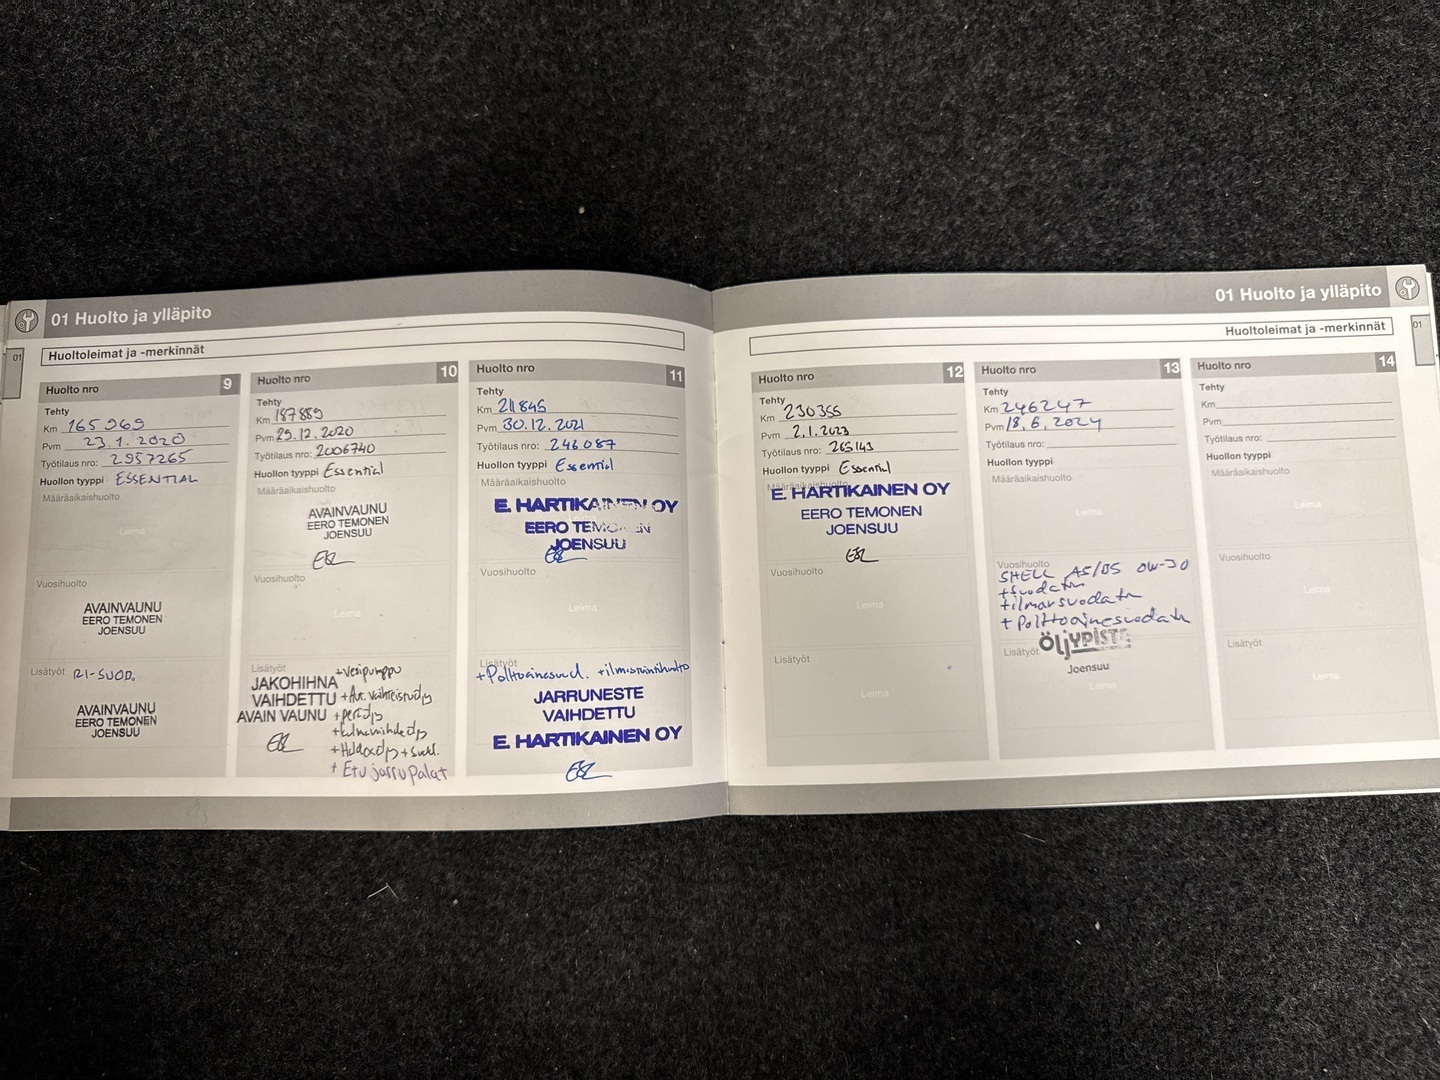 01 Huolto ja ylläpito
01
Huoltoleimat ja -merkinnät
Huolto nro 9
Tehty
Km 165969
Pvm 23.1.2020
Työtilaus nro: 2957265
Huollon tyyppi ESSENTIAL
Määräaikaishuolto
Leima
Vuosihuolto
AVAINVAUNU
EERO TEMONEN
JOENSUU
Lisätyöt RI-SUOD.
AVAINVAUNU
EERO TEMONEN
JOENSUU
Huolto nro 10
Tehty
Km 187889
Pvm 29.12.2020
Työtilaus nro: 2006740
Huollon tyyppi Essential
Määräaikaishuolto
AVAINVAUNU
EERO TEMONEN
JOENSUU
Vuosihuolto
Leima
Lisätyöt +vesipumppu
JAKOHIHNA
VAIHDETTU
AVAIN VAUNU
+peräöljy
+ Etujarrupalat
Huolto nro 11
Tehty
Km 211845
Pvm 30.12.2021
Työtilaus nro: 246087
Huollon tyyppi Essential
Määräaikaishuolto
E. HARTIKAINEN OY
EERO TEMONEN
JOENSUU
Vuosihuolto
Leima
Lisätyöt
+Polttoainesuod. +ilmastointihuolto
JARRUNESTE
VAIHDETTU
E. HARTIKAINEN OY
01 Huolto ja ylläpito
01
Huoltoleimat ja -merkinnät
Huolto nro 12
Tehty
Km 230355
Pvm 2.1.2023
Työtilaus nro: 265143
Huollon tyyppi Essential
Määräaikaishuolto
E. HARTIKAINEN OY
EERO TEMONEN
JOENSUU
Vuosihuolto
Leima
Lisätyöt
Leima
Huolto nro 13
Tehty
Km 246247
Pvm 18.6.2024
Työtilaus nro:
Huollon tyyppi
Määräaikaishuolto
Leima
Vuosihuolto
SHELL A5/B5 0W-30
+suodatin
+ilmansuodatin
+Polttoainesuodatin
Lisätyöt ÖLJYPISTE
Joensuu
Leima
Huolto nro 14
Tehty
Km
Pvm
Työtilaus nro:
Huollon tyyppi
Määräaikaishuolto
Leima
Vuosihuolto
Leima
Lisätyöt
Leima